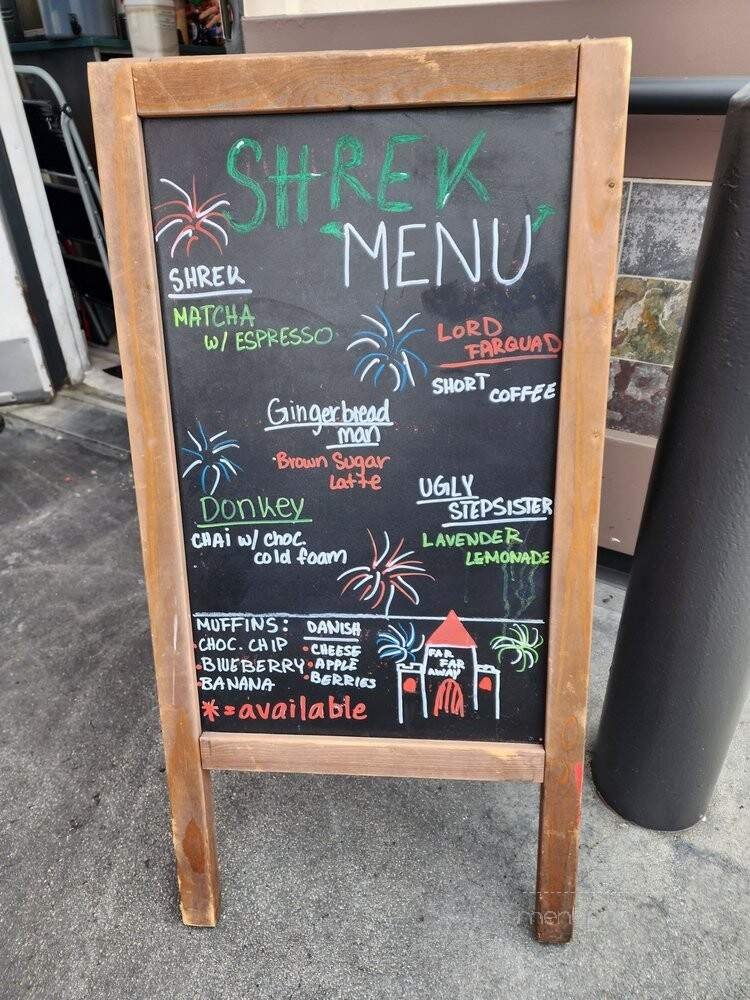 SHREK
MENU
SHREK
MATCHA
W/ ESPRESSO
LORD
FARQUAD
SHORT COFFEE
Gingerbread
man
Brown Sugar
Latte
Donkey
CHAI W/ CHOC.
cold foam
UGLY
STEPSISTER
LAVENDER
LEMONADE
MUFFINS:
• CHOC. CHIP
• BLUEBERRY
• BANANA
DANISH
• CHEESE
• APPLE
• BERRIES
* = available
FAR
FAR
AWAY